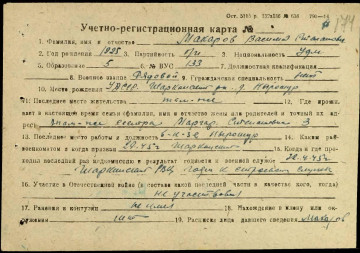 Ост. 5162 р. 127х338 № 638 194 г.
Учетно-регистрационная карта № 174
1. Фамилия, имя и отчество Макаров Василий
2. Год рождения 1925 3. Партийность б/п 4. Национальность Удм
5. Образование 5 6. № ВУС 133 7. Должностная квалификация
8. Военное звание Рядовой 9. Гражданская специальность нет
10. Место рождения УАССР, Шарканский р-н, д.
11. Последнее место жительства там-же 12. Где проживает в настоящее время семья (фамилия, имя и отчество жены или родителей и точный их адрес)
сестра
13. Последнее место работы и должность 14. Каким райвоенкоматом и когда призван 20.4.45 Шарканским 15. Когда и где проходил последний раз медкомиссию и результат годности к военной службе 20.4.45
Шарканский РВК годен к строевой службе
16. Участие в Отечественной войне (в составе какой последней части в качестве кого, когда)
не участвовал
17. Ранения и контузии не имел 18. Нахождение в плену или окружении нет
19. Расписка лица давшего сведения Макаров